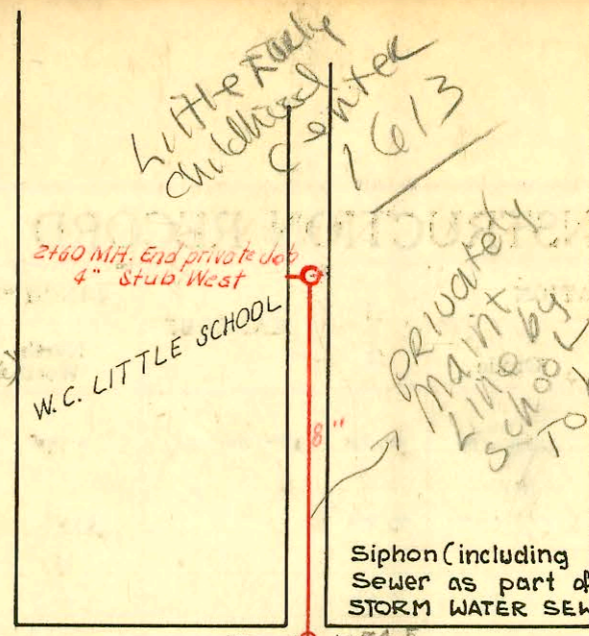 Little Early
Childhood
Center
1613
2+60 MH. End private job
4" Stub West
W. C. LITTLE SCHOOL
8"
Privately
Maint
Line by
School
To
Siphon (including
Sewer as part of
STORM WATER SEW